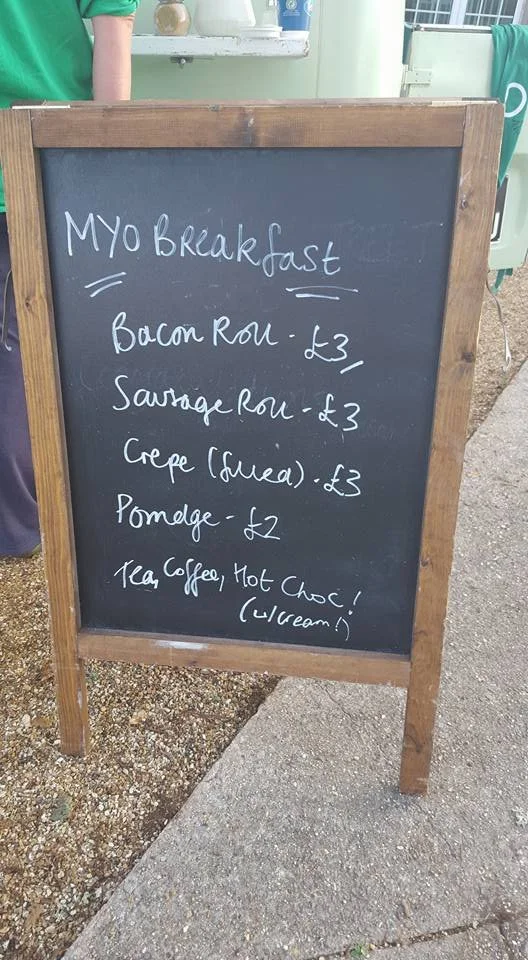 MYO Breakfast
Bacon Roll - £3
Sausage Roll - £3
Crepe (filled) - £3
Porridge - £2
Tea, Coffee, Hot Choc!
(w/cream!)